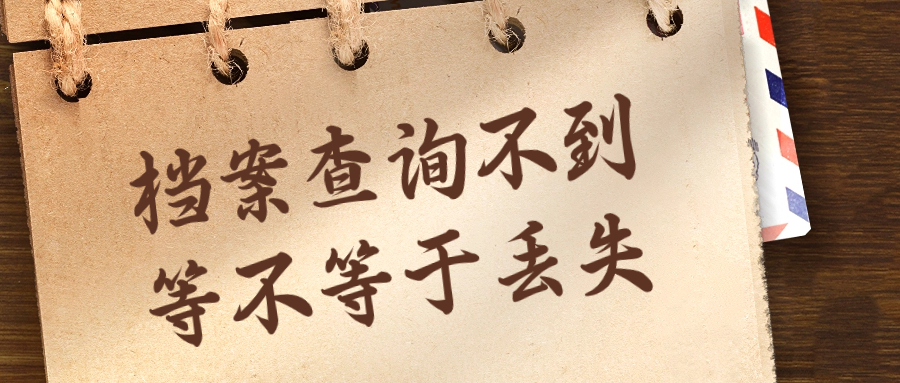 档案查询不到
等不等于丢失